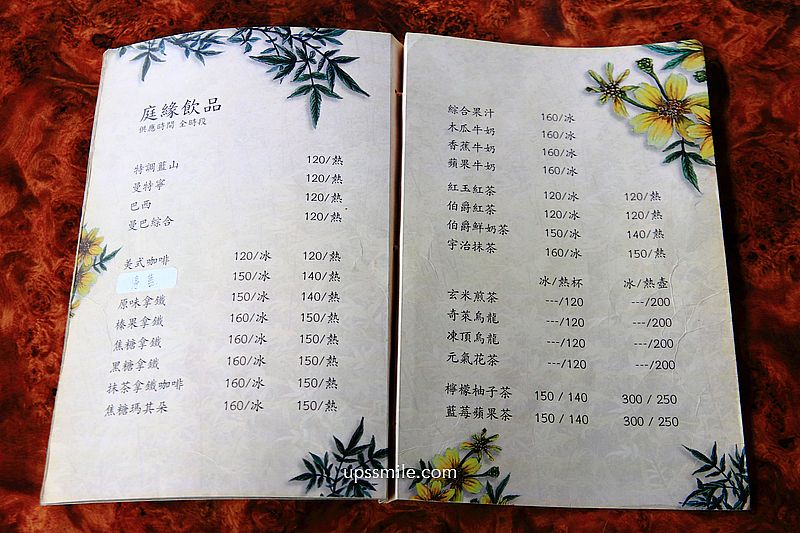 庭緣飲品
供應時間 全時段
特調藍山 120/熱
曼特寧 120/熱
巴西 120/熱
曼巴綜合 120/熱
美式咖啡 120/冰 120/熱
150/冰 140/熱
原味拿鐵 150/冰 140/熱
榛果拿鐵 160/冰 150/熱
焦糖拿鐵 160/冰 150/熱
黑糖拿鐵 160/冰 150/熱
抹茶拿鐵咖啡 160/冰 150/熱
焦糖瑪其朵 160/冰 150/熱
綜合果汁 160/冰
木瓜牛奶 160/冰
香蕉牛奶 160/冰
蘋果牛奶 160/冰
紅玉紅茶 120/冰 120/熱
伯爵紅茶 120/冰 120/熱
伯爵鮮奶茶 150/冰 140/熱
宇治抹茶 160/冰 150/熱
冰/熱杯 冰/熱壺
玄米煎茶 ---/120 ---/200
奇萊烏龍 ---/120 ---/200
凍頂烏龍 ---/120 ---/200
元氣花茶 ---/120 ---/200
檸檬柚子茶 150 / 140 300 / 250
藍莓蘋果茶 150 / 140 300 / 250
upssmile.com